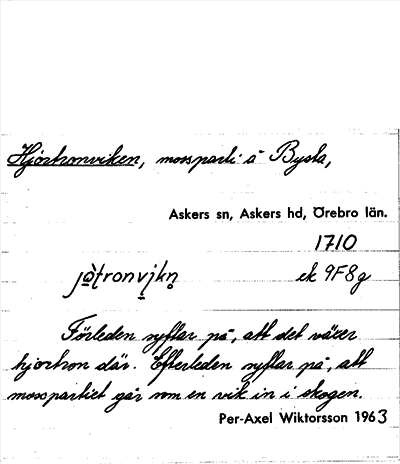 Hjortronviken, mossparti å Bysta,
Askers sn, Askers hd, Örebro län.
1710
ek 9F8g
Förleden syftar på, att det växer
hjortron där. Efterleden syftar på, att
mosspartiet går som en vik in i skogen.
Per-Axel Wiktorsson 1963